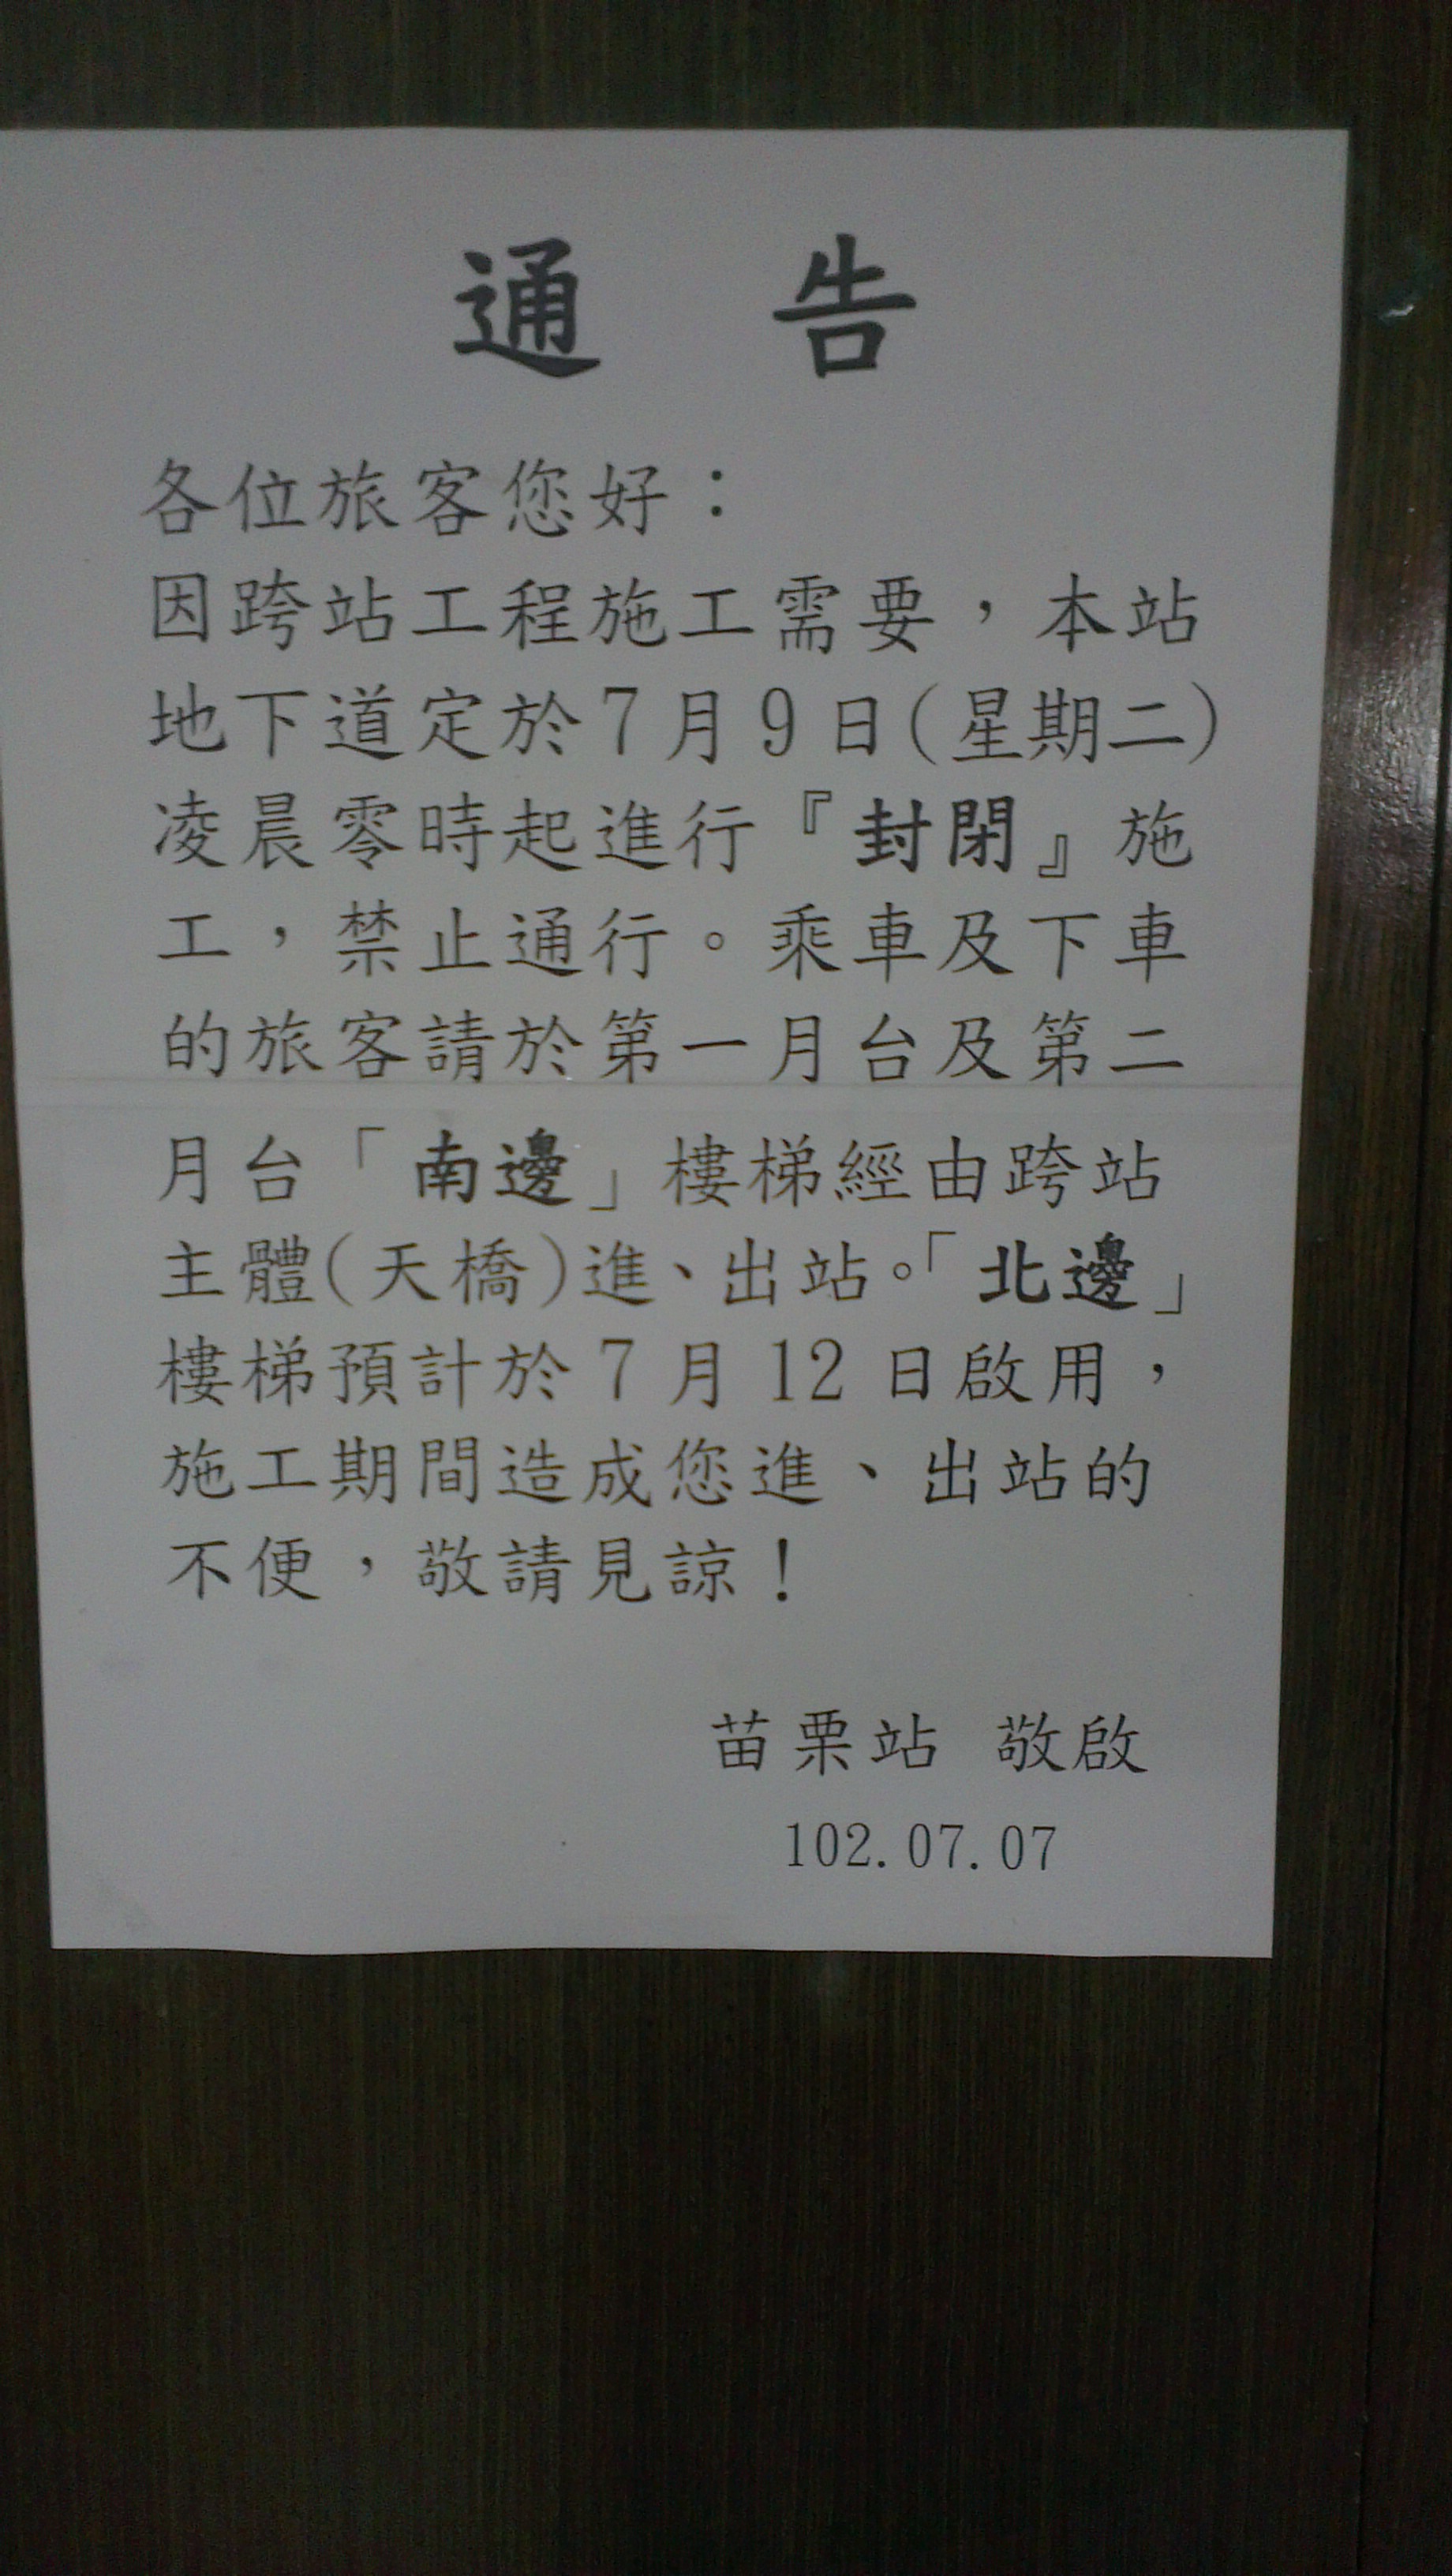 通 告
各位旅客您好：
因跨站工程施工需要，本站
地下道定於7月9日(星期二)
凌晨零時起進行『封閉』施
工，禁止通行。乘車及下車
的旅客請於第一月台及第二
月台「南邊」樓梯經由跨站
主體(天橋)進、出站。「北邊」
樓梯預計於7月12日啟用，
施工期間造成您進、出站的
不便，敬請見諒！
苗栗站 敬啟
102.07.07